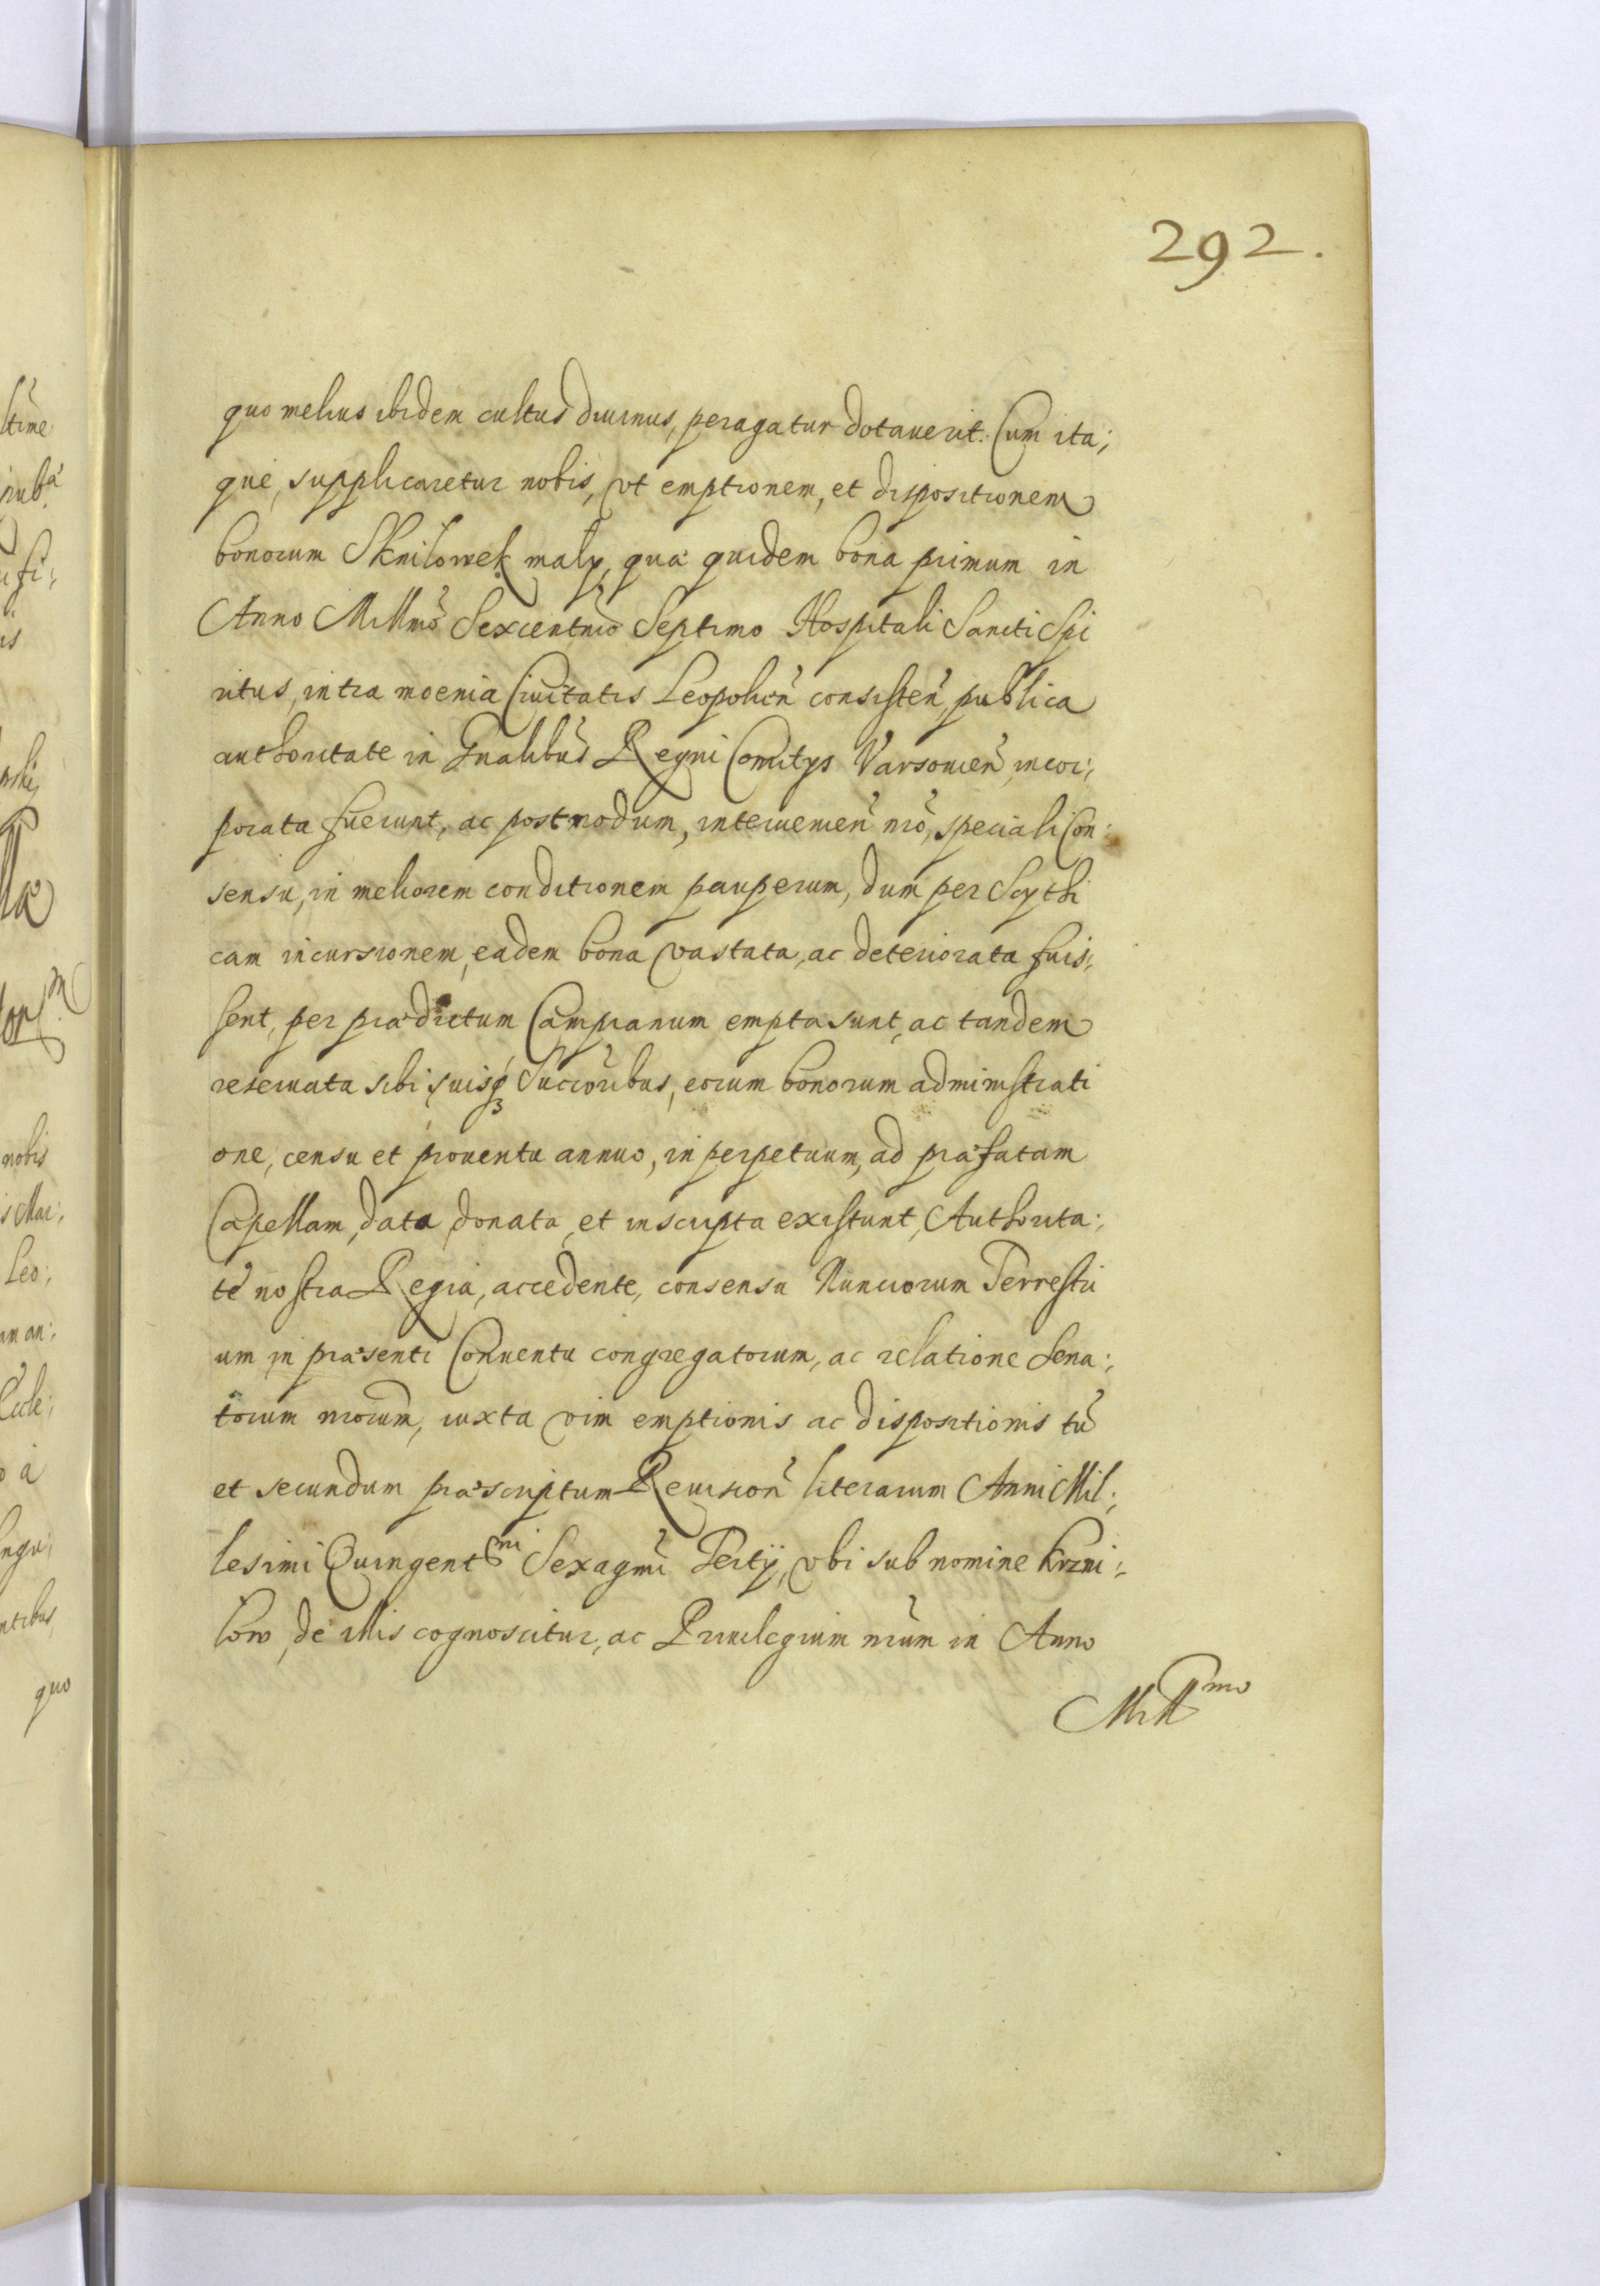 292.
quo melius ibidem cultus diuinus, peragatur dotauerit. Cum ita;
que, supplicaretur nobis, vt emptionem, et dispositionem
bonorum Sknilowek maly, quæ quidem bona primum in
Anno Millmo Sexcentmo Septimo Hospitali Sancti Spi
ritus, intra moenia Ciuitatis Leopolien consisten, publica
authoritate in Gnalibus Regni Comitys Varsouien, incor;
porata fuerunt, ac postmodum, interuenien nro, speciali Con:
sensu, in meliorem conditionem pauperum, dum per Scythi
cam incursionem, eadem bona vastata, ac deteriorata fuis;
sent, per prædictum Campianum empta sunt, ac tandem
reseruata sibi suisq Succoribus, eorum bonorum administrati
one, censu et prouentu annuo, in perpetuum, ad præfatam
Capellam, data donata, et inscripta existunt, Authorita:
te nostra Regia, accedente, consensu Nunciorum Terrestri
um in præsenti Conuentu congregatorum, ac relatione Sena:
torum nrorum, iuxta vim emptionis ac dispositionis tu
et secundum præscriptum Reuision literarum Anni Mil;
lesimi Quingentmi Sexagmi Tertij, vbi sub nomine Krzni:
low, de illis cognoscitur, ac Priuilegium nrum in Anno
Millmo